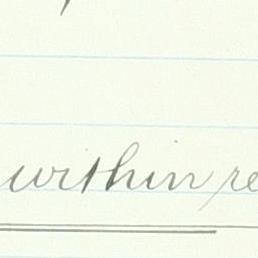 within re